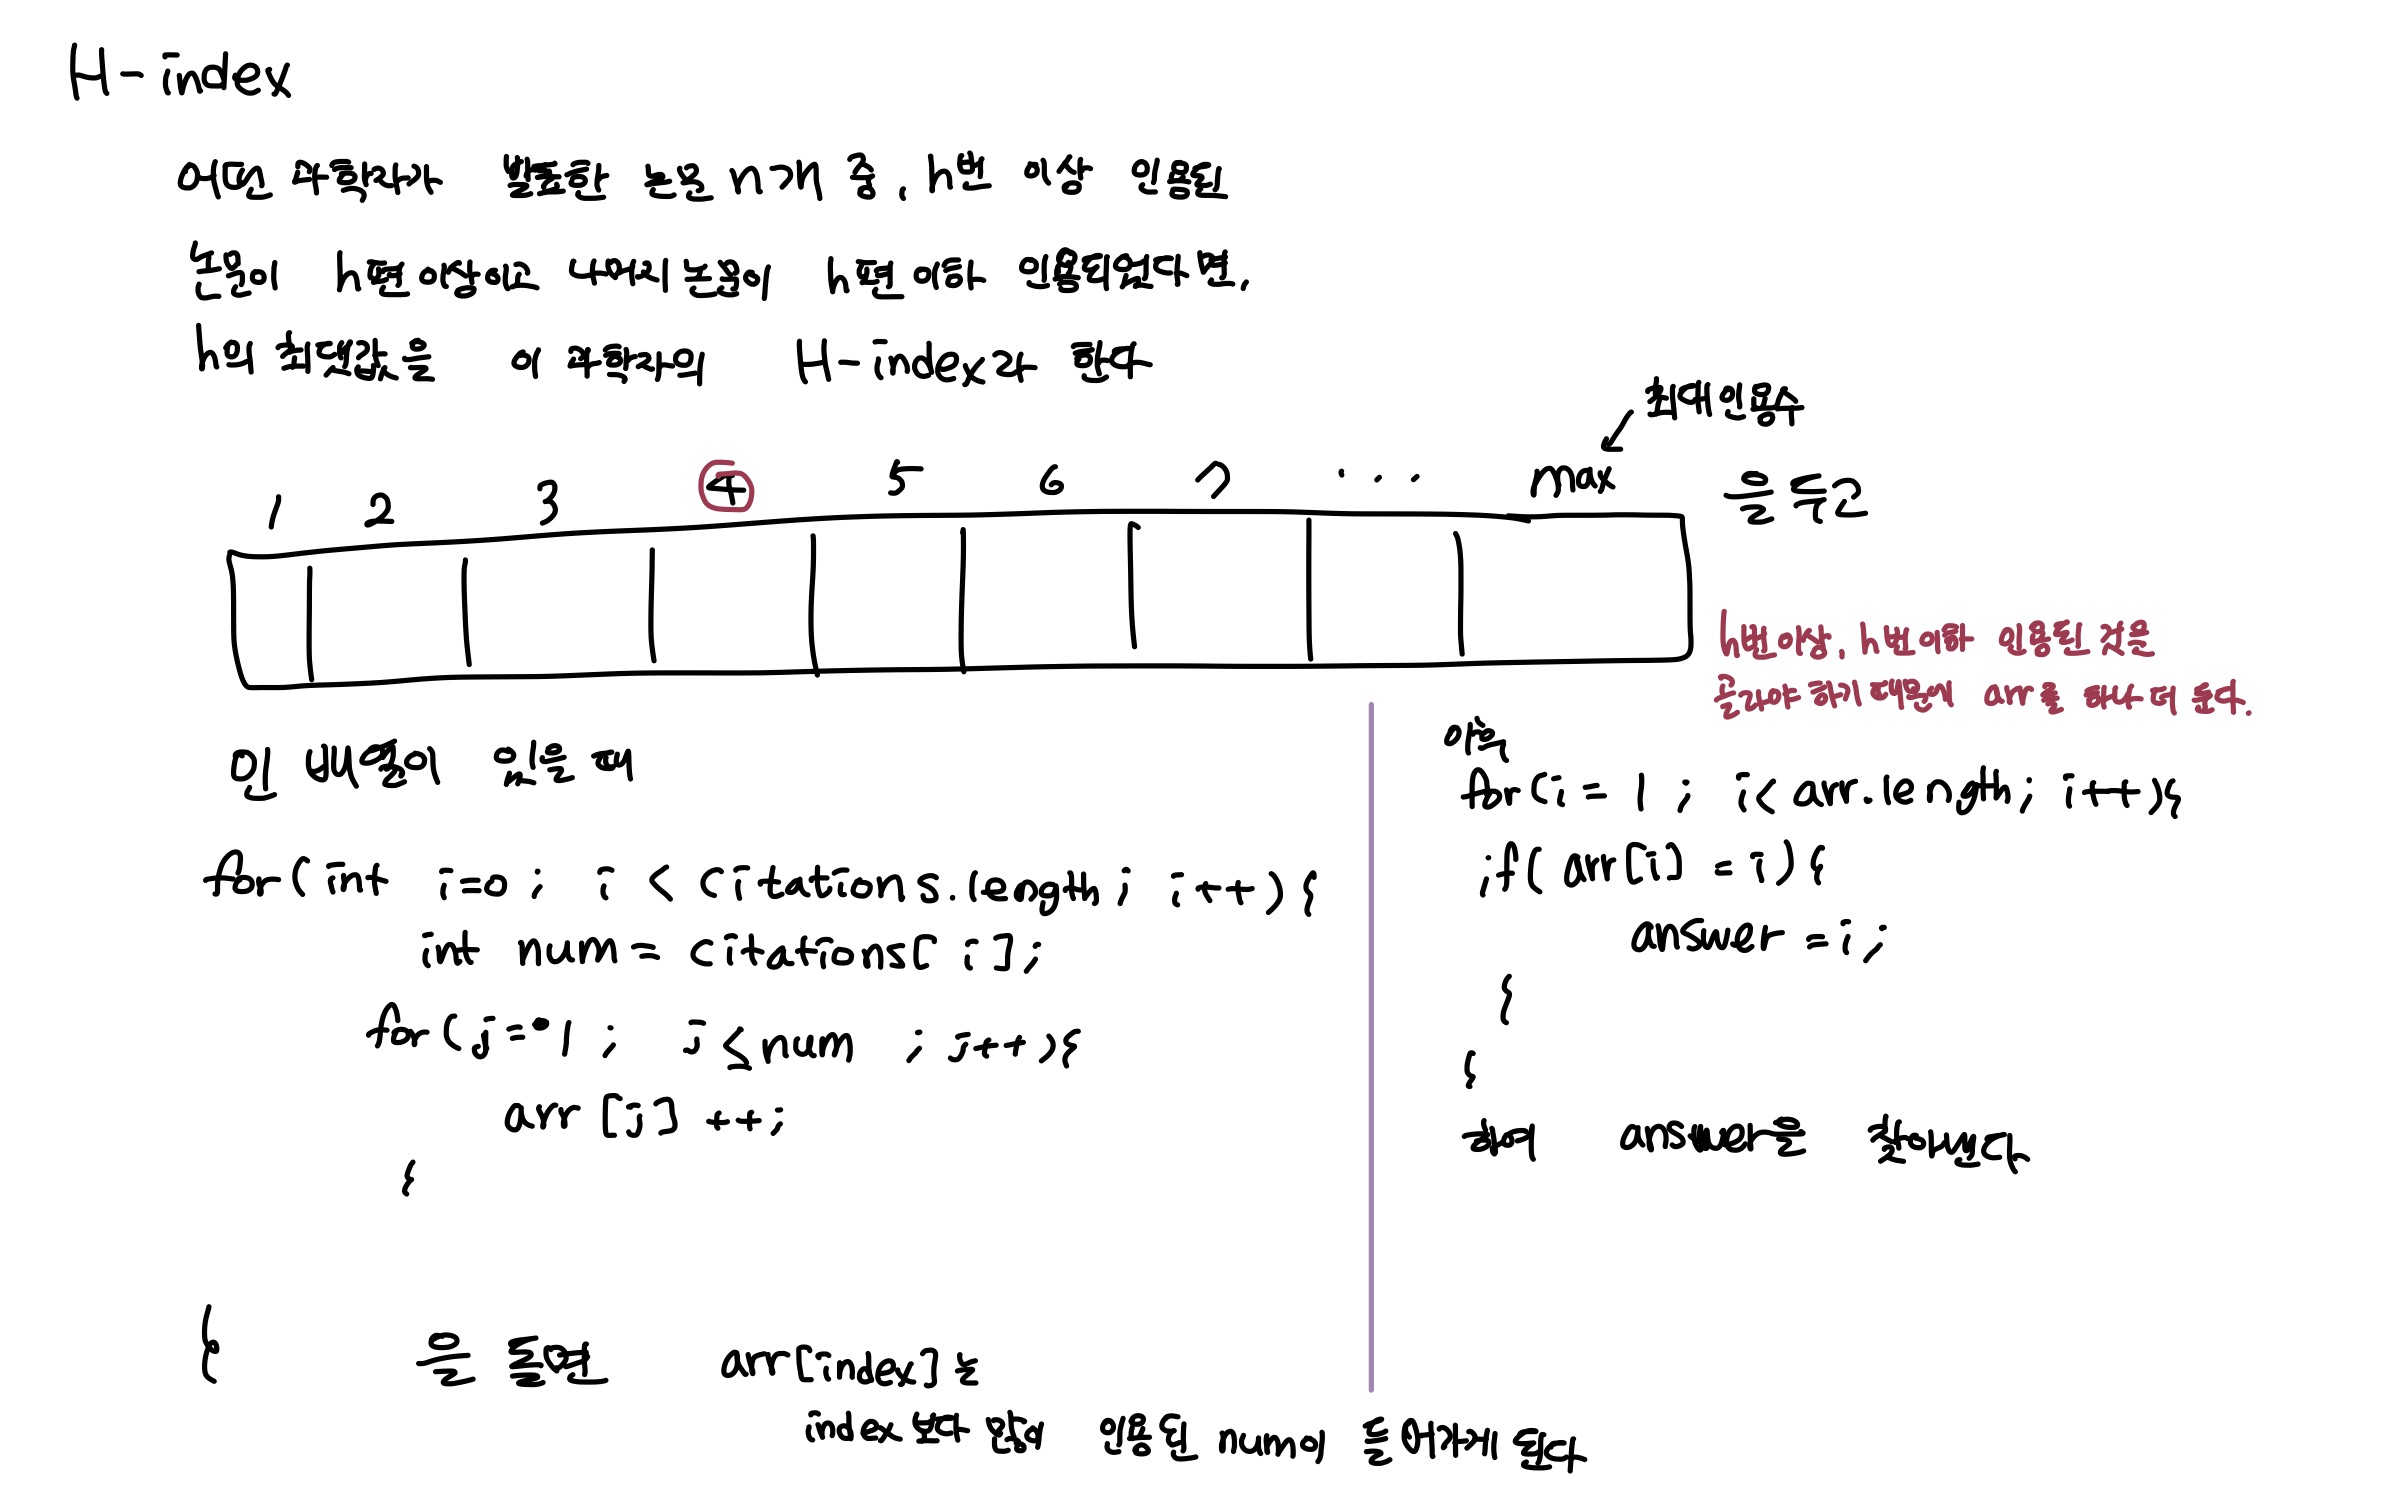 H-index
어떤 과학자가 발표한 논문 n개 중, h번 이상 인용된
논문이 h편 이상이고 나머지 논문이 h편 이하 인용되었다면,
h의 최댓값을 이 과학자의 H-index라 한다
최대인용수
1 2 3 4 5 6 7 ... max 을 두고
h번이상, h번이하 인용된 것을
골라야 하기 때문에 arr를 하나 더 둔다.
인 배열이 있을 때
for(int i=0; i < citations.length; i++){
int num = citations[i];
for(j=1; j≤num ; j++){
arr[j]++;
}
} 을 돌면 arr[index]는
index보다 많이 인용된 num이 들어가게 된다
이후
for(i=1; i<arr.length; i++){
if(arr[i] = i){
answer = i;
}
}
하여 answer을 찾아낸다